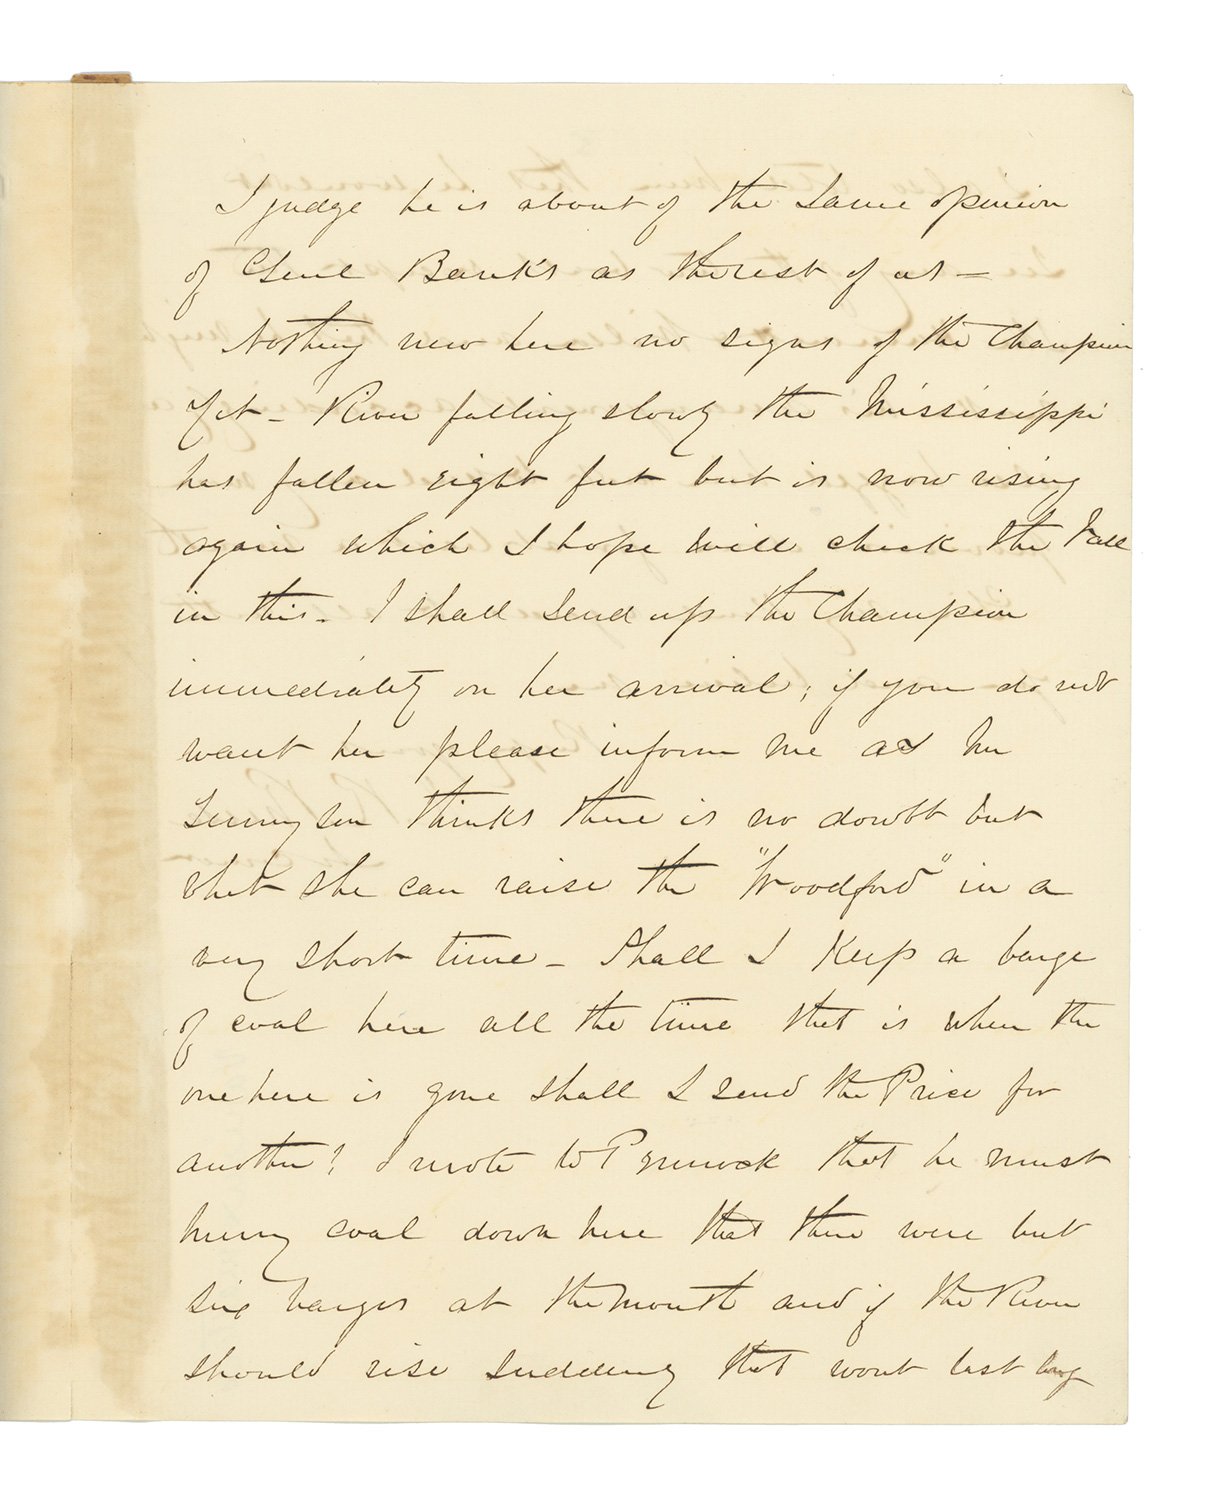 I judge he is about of the Same opinion
of Genl Banks as the rest of us —
Nothing new here no signs of the Champion
Yet — River falling slowly the Mississippi
has fallen eight feet but is now rising
again which I hope will check the Fall
in this. I shall send up the Champion
immediately on her arrival; if you do not
want her please inform me as Mr
Tennyson thinks there is no doubt but
what she can raise the "Woodford" in a
very short time — Shall I Keep a barge
of coal here all the time that is when the
one here is gone shall I send the Price for
another? I wrote to Pennock that he must
hurry coal down here that there were but
six barges at the mouth and if the River
should rise suddenly that wont last long